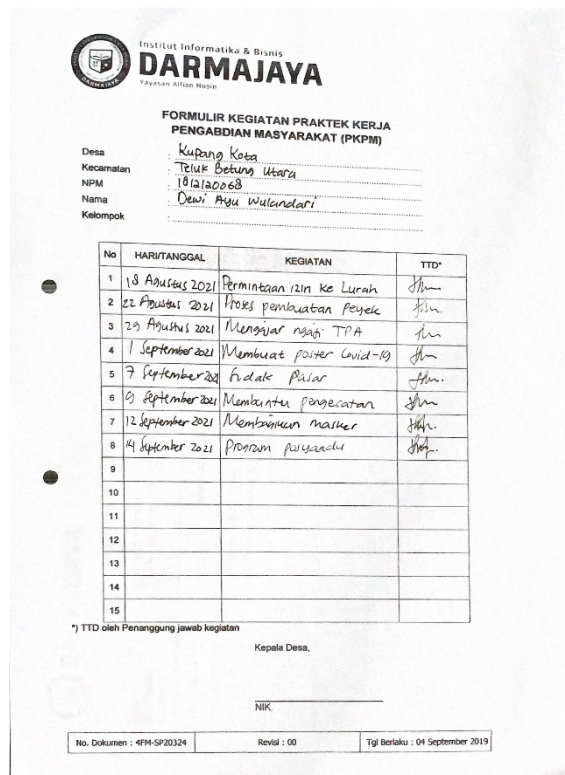 Institut Informatika & Bisnis
DARMAJAYA
Yayasan Alfian Husin
DARMAJAYA
FORMULIR KEGIATAN PRAKTEK KERJA
PENGABDIAN MASYARAKAT (PKPM)
Desa : Kupang Kota
Kecamatan : Teluk Betung Utara
NPM : 1812120068
Nama : Dewi Ayu Wulandari
Kelompok :
No HARI/TANGGAL KEGIATAN TTD*
1 18 Agustus 2021 Permintaan izin ke Lurah
2 22 Agustus 2021 Proses pembuatan Peyek
3 29 Agustus 2021 Mengajar ngaji TPA
4 1 September 2021 Membuat poster Covid-19
5 7 September 2021 Sidak Pasar
6 9 September 2021 Membantu pengecatan
7 12 September 2021 Membagikan masker
8 14 September 2021 Program posyandu
9
10
11
12
13
14
15
*) TTD oleh Penanggung jawab kegiatan
Kepala Desa,
NIK.
No. Dokumen : 4FM-SP20324 Revisi : 00 Tgl Berlaku : 04 September 2019